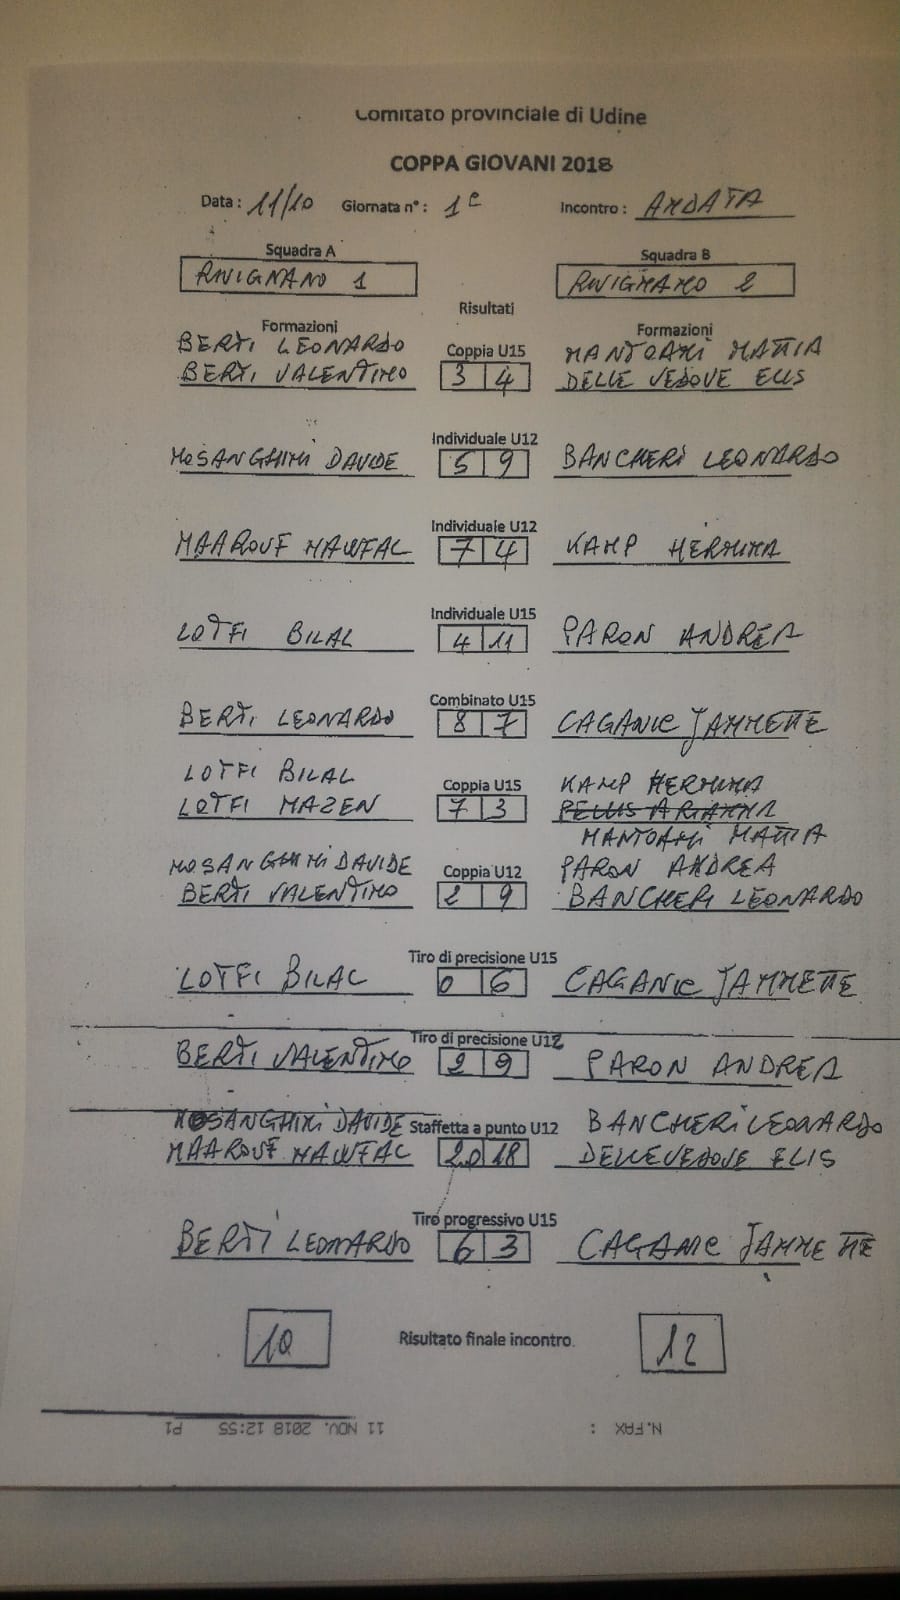 Comitato provinciale di Udine
COPPA GIOVANI 2018
Data : 11/10 Giornata n° : 1ᵉ Incontro : ANDATA
Squadra A Squadra B
RIVIGNANO 1 RIVIGNANO 2
Risultati
Formazioni Formazioni
BERTI LEONARDO MANTOANI MATTIA
Coppia U15
BERTI VALENTINO 3 4 DELLE VEDOVE ELIS
Individuale U12
MOSANGHINI DAVIDE 5 9 BANCHERI LEONARDO
Individuale U12
MAAROUF NAWFAL 7 4 KAMP HERMINA
Individuale U15
LOTFI BILAL 4 11 PARON ANDREA
Combinato U15
BERTI LEONARDO 8 7 CAGANIC JAMMETTE
LOTFI BILAL Coppia U15 KAMP HERMINA
LOTFI MAZEN 7 3 PELUS ARIANNA
MANTOANI MATTIA
MOSANGHINI DAVIDE Coppia U12 PARON ANDREA
BERTI VALENTINO 2 9 BANCHERI LEONARDO
Tiro di precisione U15
LOTFI BILAL 0 6 CAGANIC JAMMETTE
Tiro di precisione U12
BERTI VALENTINO 2 9 PARON ANDREA
MOSANGHINI DAVIDE Staffetta a punto U12 BANCHERI LEONARDO
MAAROUF NAWFAL 20 18 DELLE VEDOVE ELIS
Tiro progressivo U15
BERTI LEONARDO 6 3 CAGANIC JAMMETTE
10 Risultato finale incontro 12
N.FAX : 11 NOV. 2018 12:55 P1